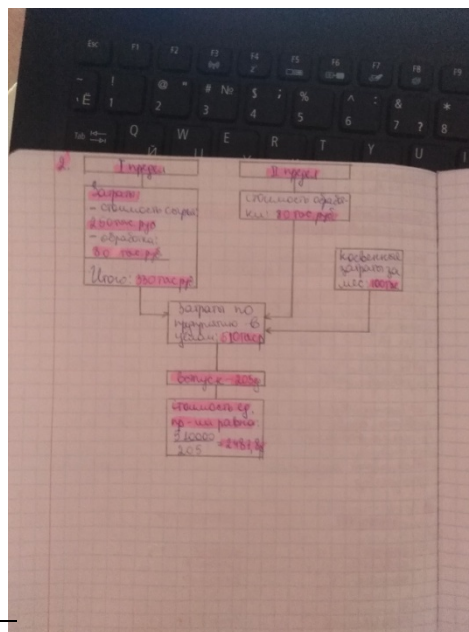 Esc F1 F2 F3 F4 F5 F6 F7 F8 F9
! " # № $ ; % ^ : & ?
Ё 1 2 3 4 5 6 7 8
Tab Q W E R T Y U
Й
2.
I предел
II предел
Затраты
- стоимость сырья:
250 тыс руб
- обработка:
80 тыс руб
Итого: 330 тыс руб
стоимость обработ-
ки: 80 тыс руб
Косвенные
затраты за
мес 100
Затраты по
предприятию в
целом: 510 тыс р
Выпуск - 205
стоимость ед.
пр-ва равна
510000
205
=2487,8р